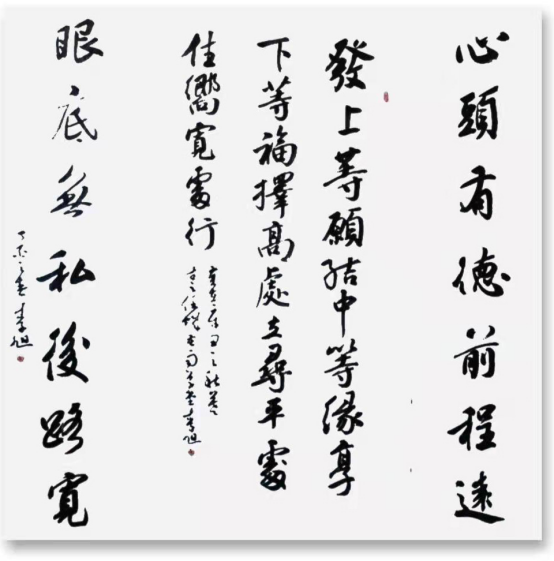 心頭有德前程遠
發上等願結中等緣享
下等福擇高處立尋平處
住嚮寬處行
李旭
眼底無私後路寬
李旭